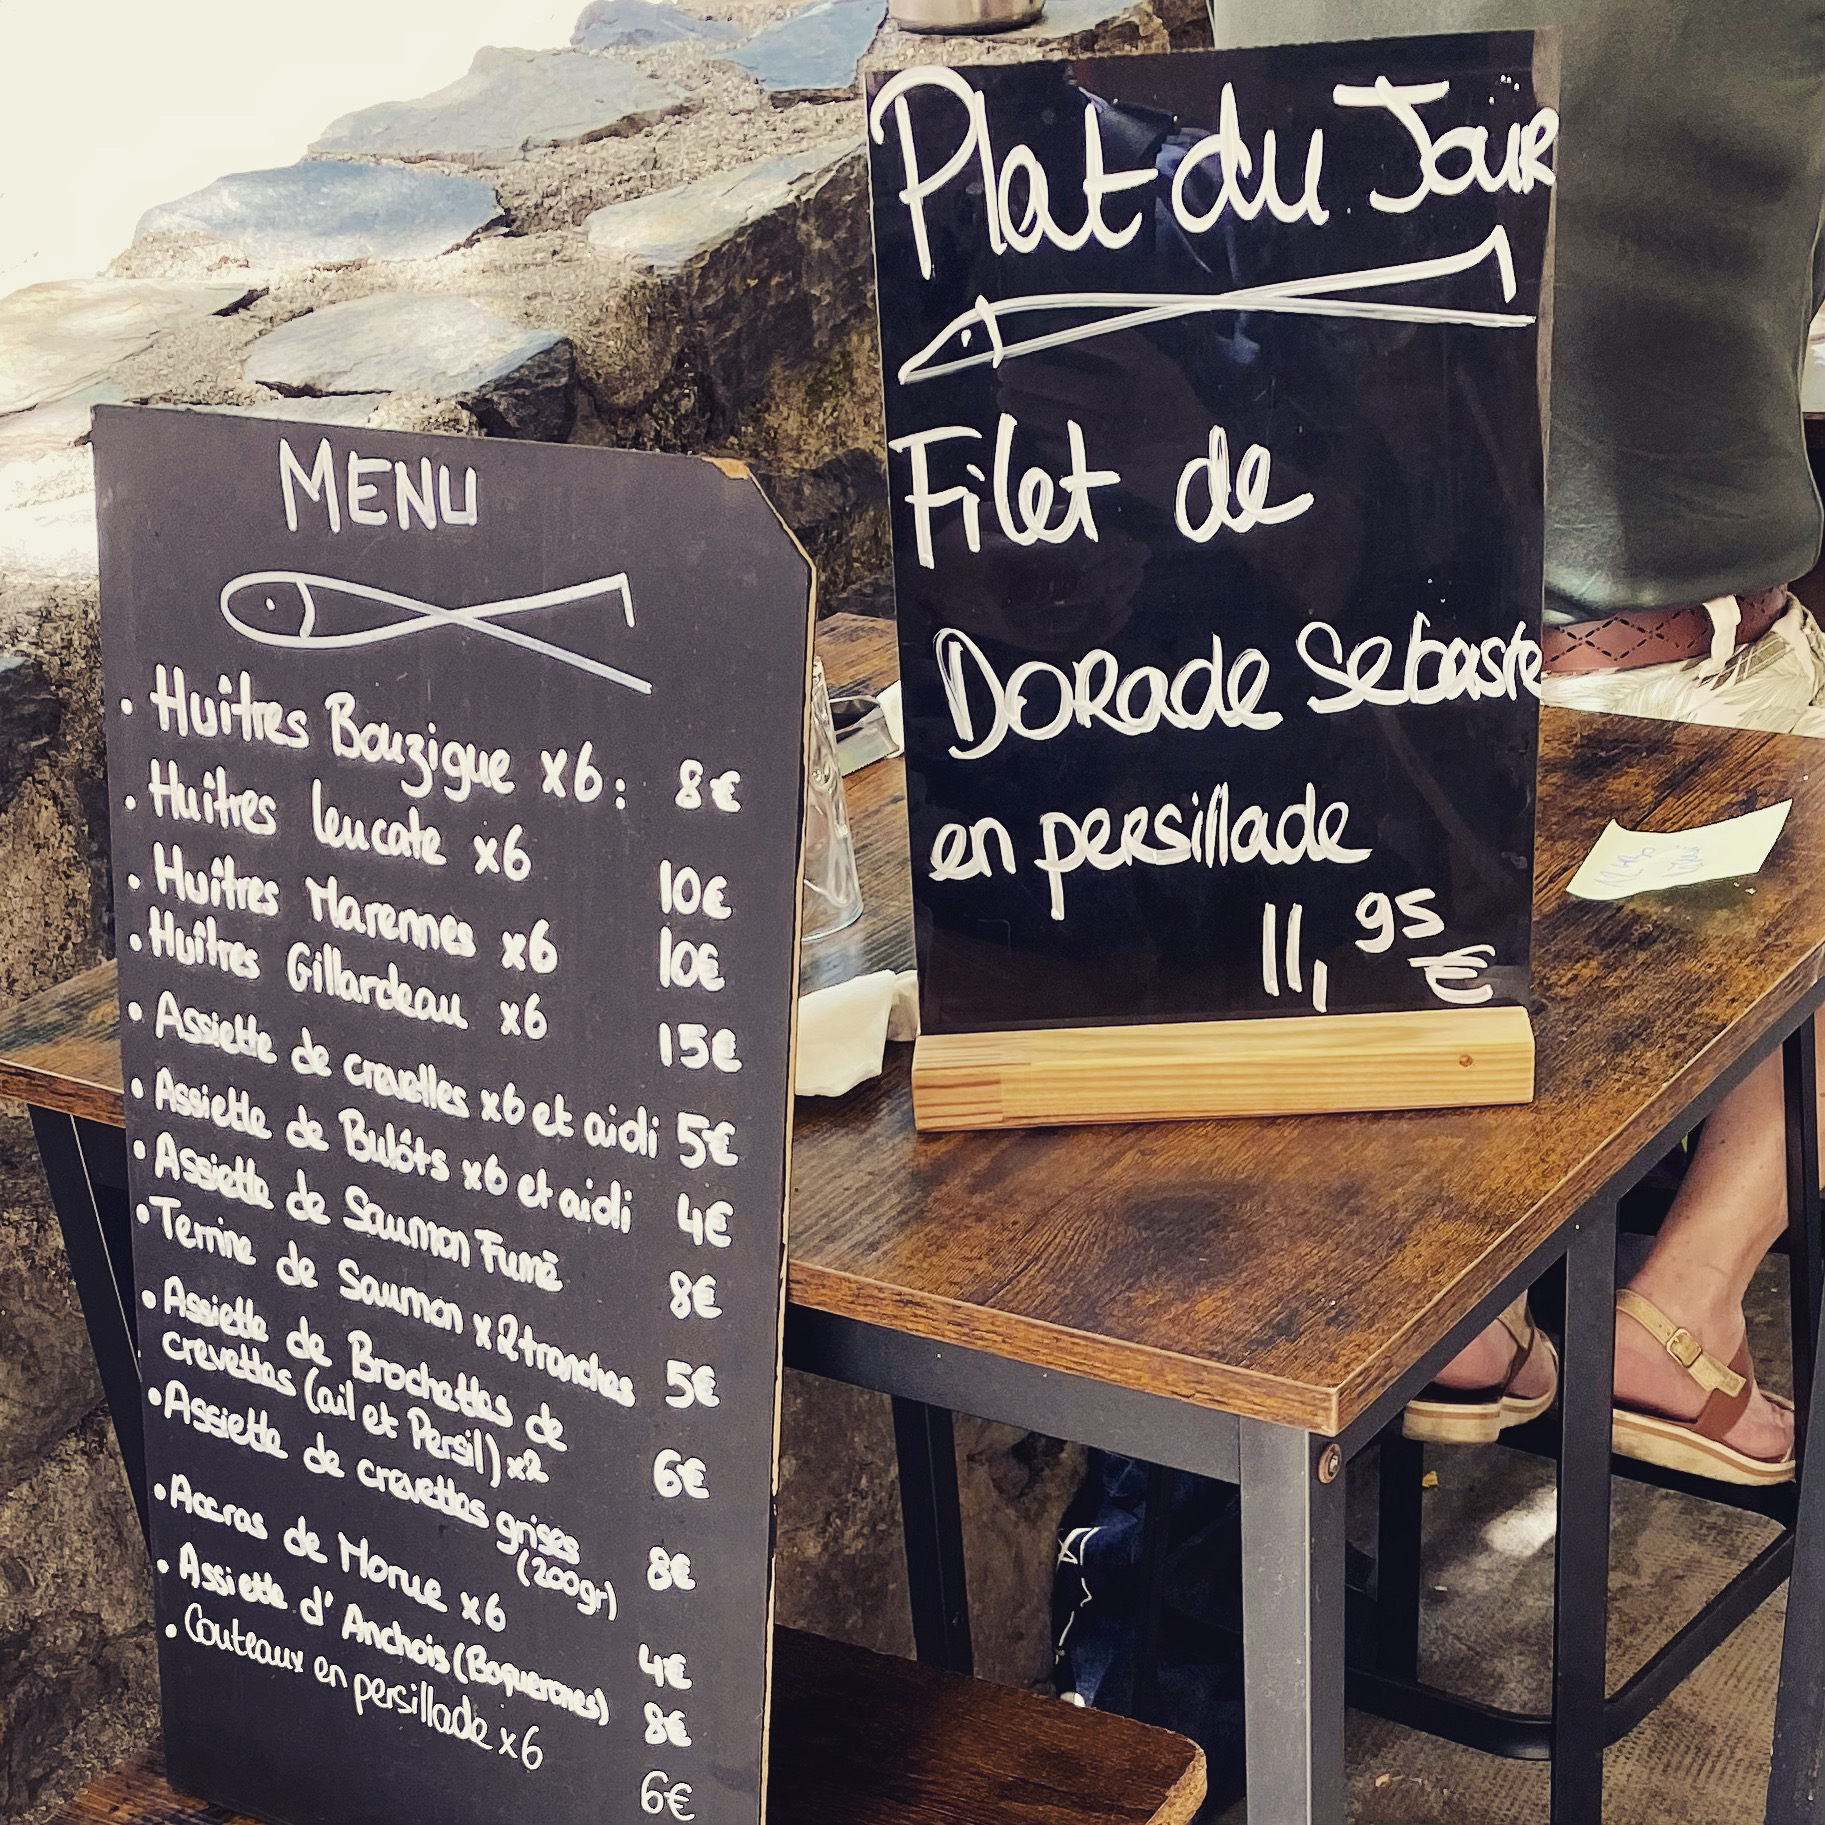 MENU
• Huîtres Bouzigue x6 : 8€
• Huitres leucate x6 10€
• Huîtres Marennes x6 10€
• Huîtres Gillardeau x6 15€
• Assiette de crevettes x6 et aioli 5€
• Assiette de Bulôts x6 et aioli 4€
• Assiette de Saumon Fumé 8€
• Terrine de Saumon x2 tranches 5€
• Assiette de Brochettes de
crevettes (ail et Persil) x2 6€
• Assiette de crevettes grises
(200gr) 8€
• Accras de Morue x6 4€
• Assiette d'Anchois (Boquerones) 8€
• Couteaux en persillade x6 6€
Plat du Jour
Filet de
Dorade Sebaste
en persillade
11,95€